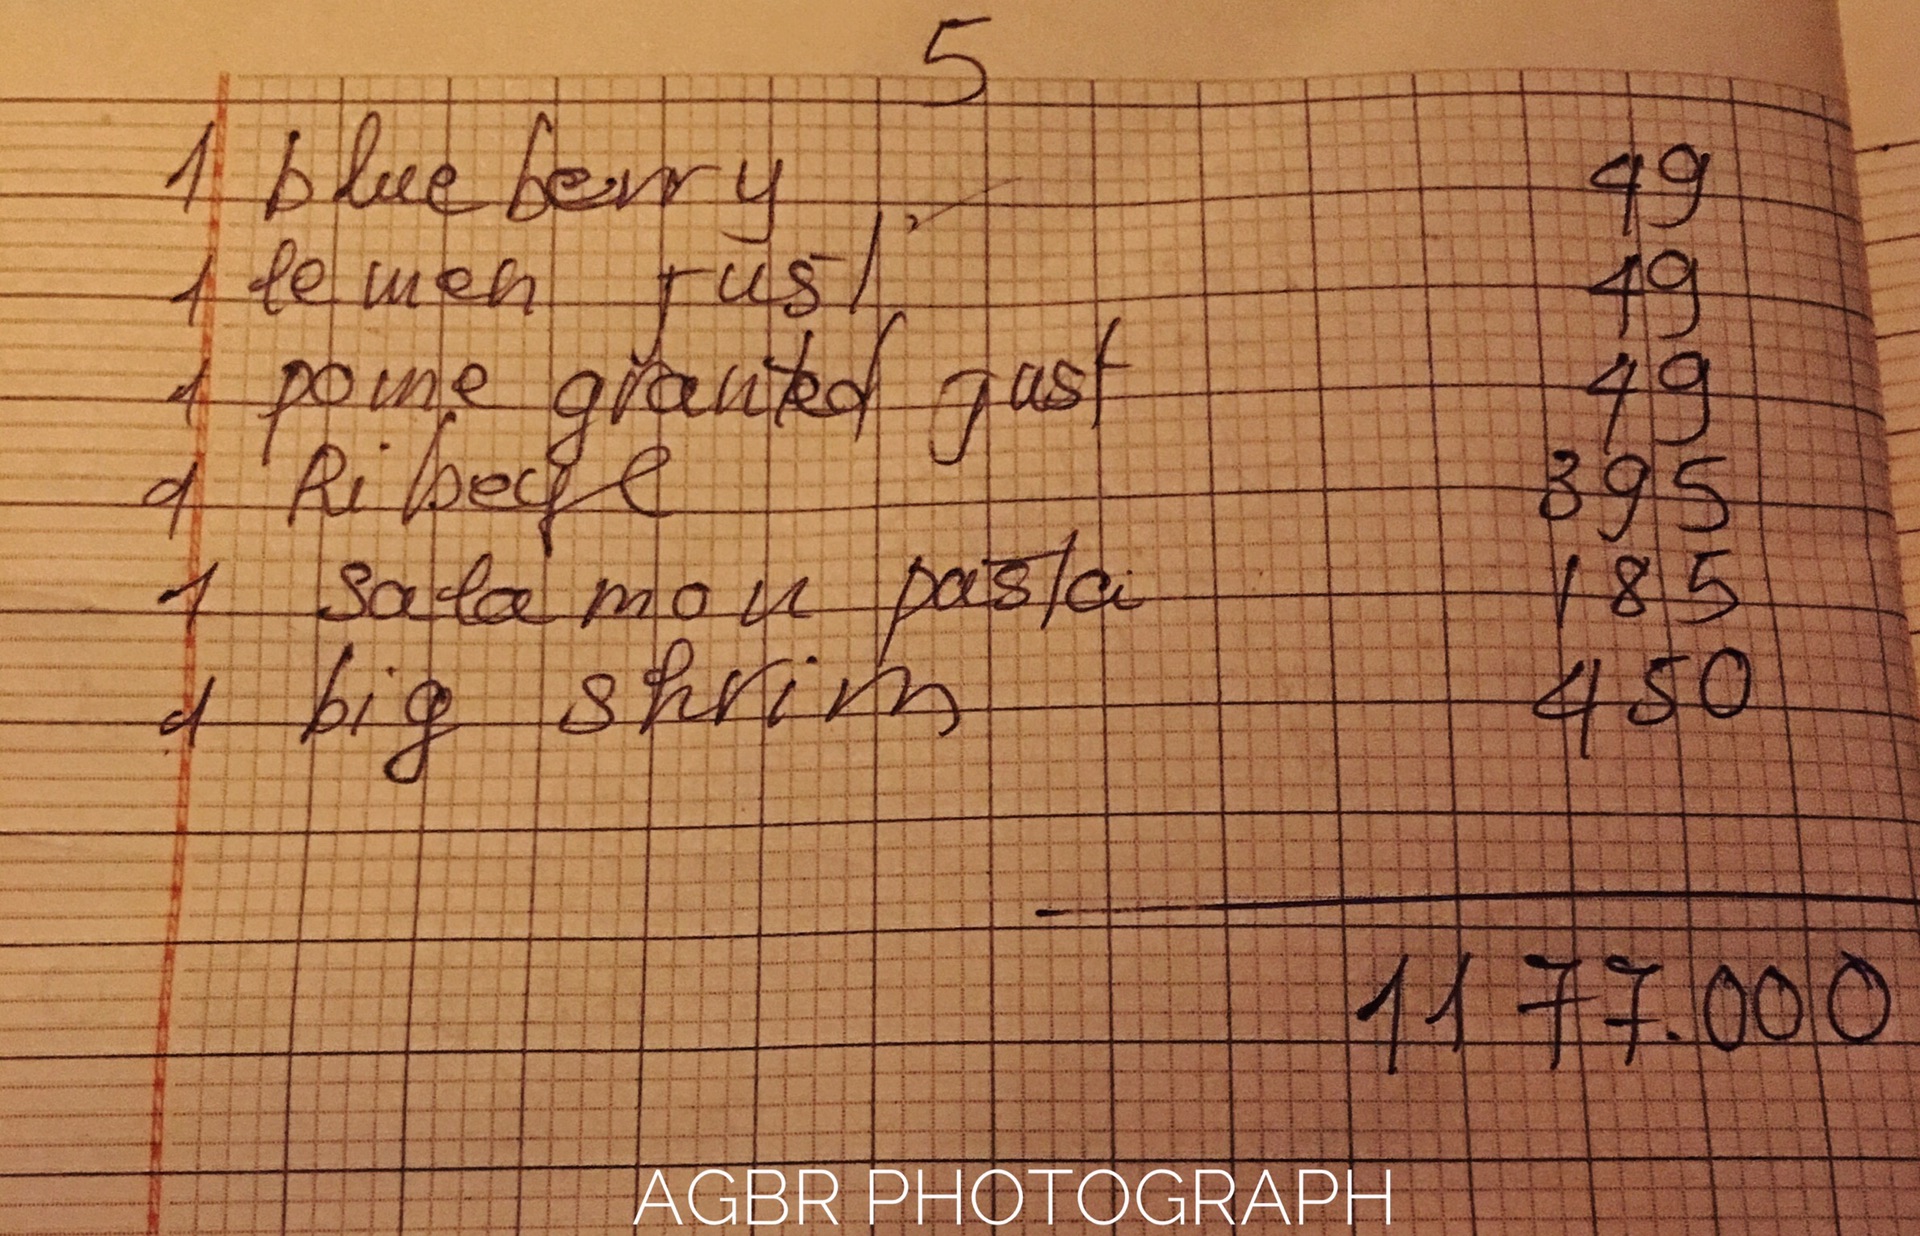 5
1 blueberry 49
1 lemen just 49
1 pome granted just 49
1 Ribeye 395
1 salamon pasta 185
1 big shrim 450
1177.000
AGBR PHOTOGRAPH